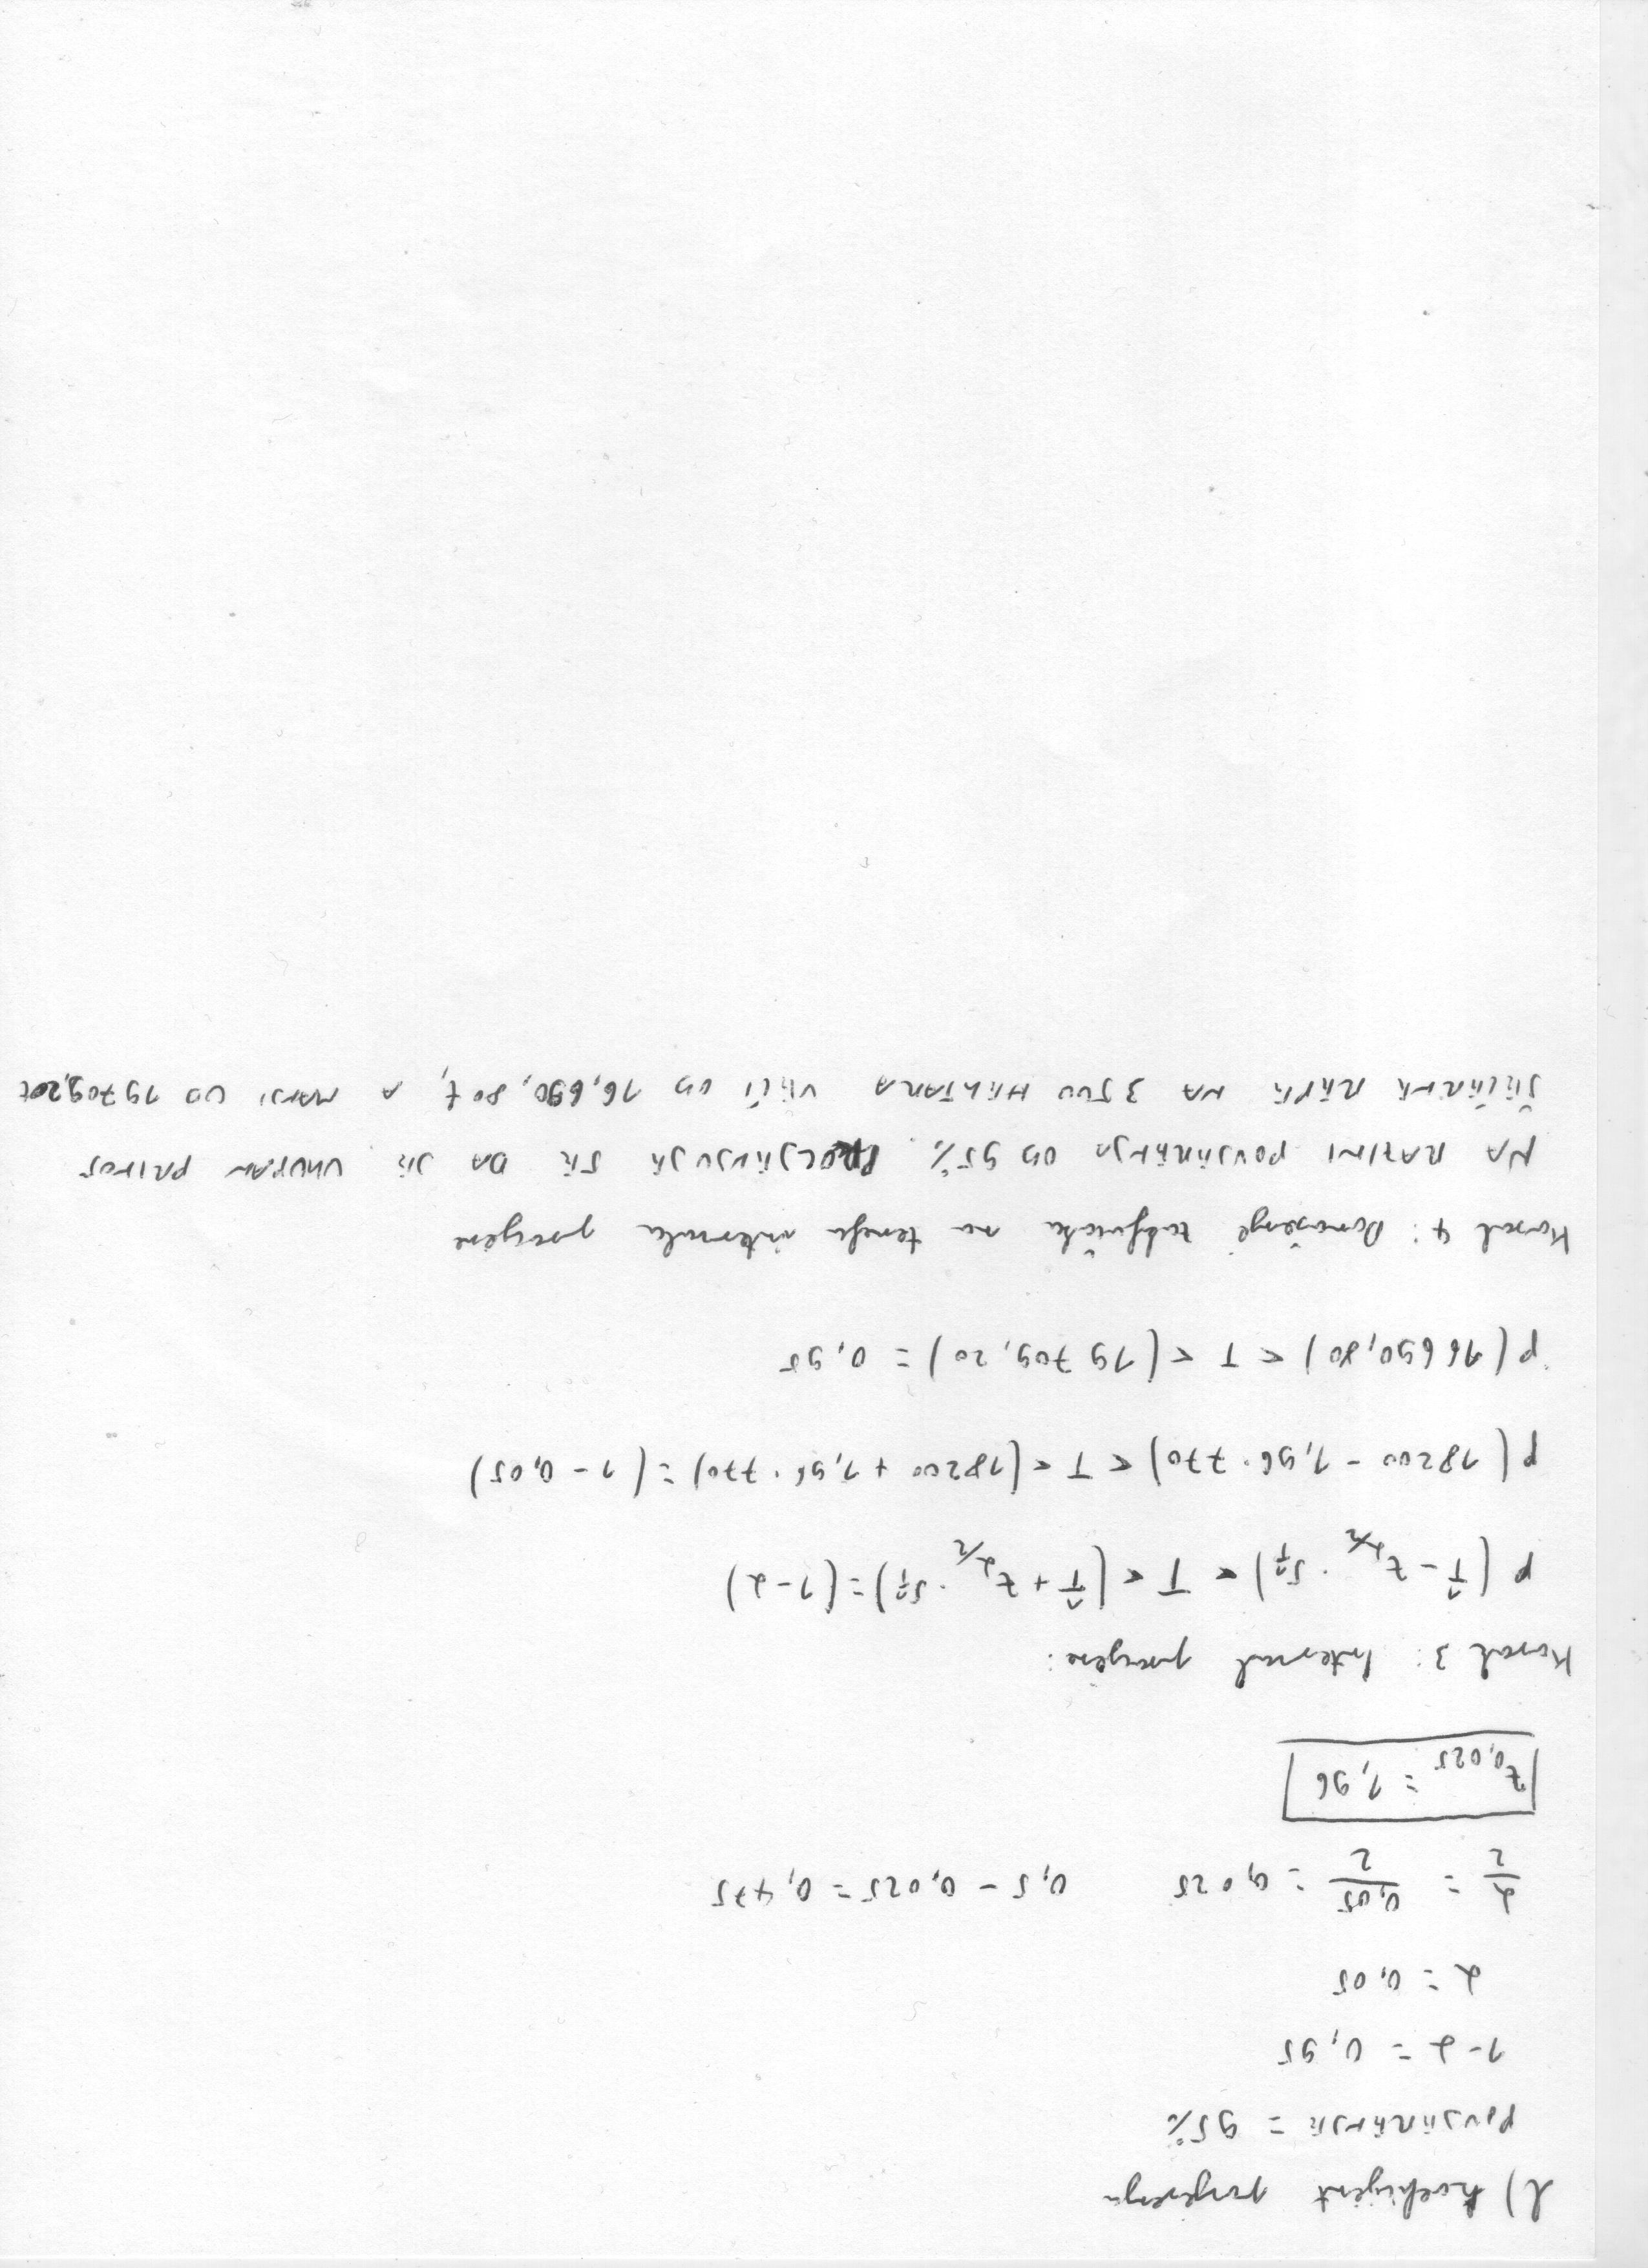 b) koeficijent povjerenja
POVJERENJE = 95%
1-α = 0,95
α = 0,05
α/2 = 0,05/2 = 0,025 0,5 - 0,025 = 0,475
z0,025 = 1,96
Korak 3: Interval procjene:
P (T̂ - zα/2 · sT̂) < T < (T̂ + zα/2 · sT̂) = (1-α)
P( 18200 - 1,96 · 770) < T < (18200 + 1,96 · 770) = (1 - 0,05)
P(16690,80) < T < (19709,20) = 0,95
Korak 4: Donošenje zaključka na temelju intervala procjene
NA RAZINI POVJERENJA OD 95%. PROCJENJUJE SE DA JE UKUPAN PRINOS
ŠEĆERNE REPE NA 3500 HEKTARA VEĆI OD 16,690,80 t, A MANJI OD 19709,20t